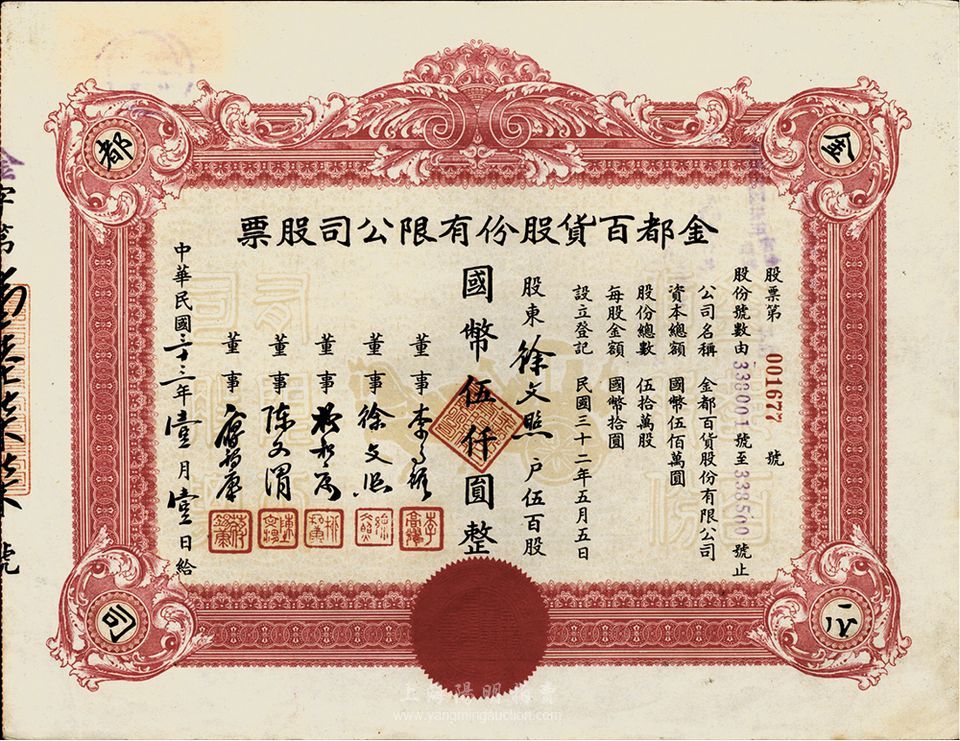 金都百貨股份有限公司股票
股票第 001677 號
股份號數由338001號至338500號止
公司名稱 金都百貨股份有限公司
資本總額 國幣伍佰萬圓
股份總數 伍拾萬股
每股金額 國幣拾圓
設立登記 民國三十二年五月五日
股東徐文照戶伍百股
國幣伍仟圓整
董事
董事 徐文照
董事
董事 陳文渭
董事
中華民國三十三年壹月壹日給
金
都
公
司
金字第
號
上海陽明拍賣
www.yangmingauction.com